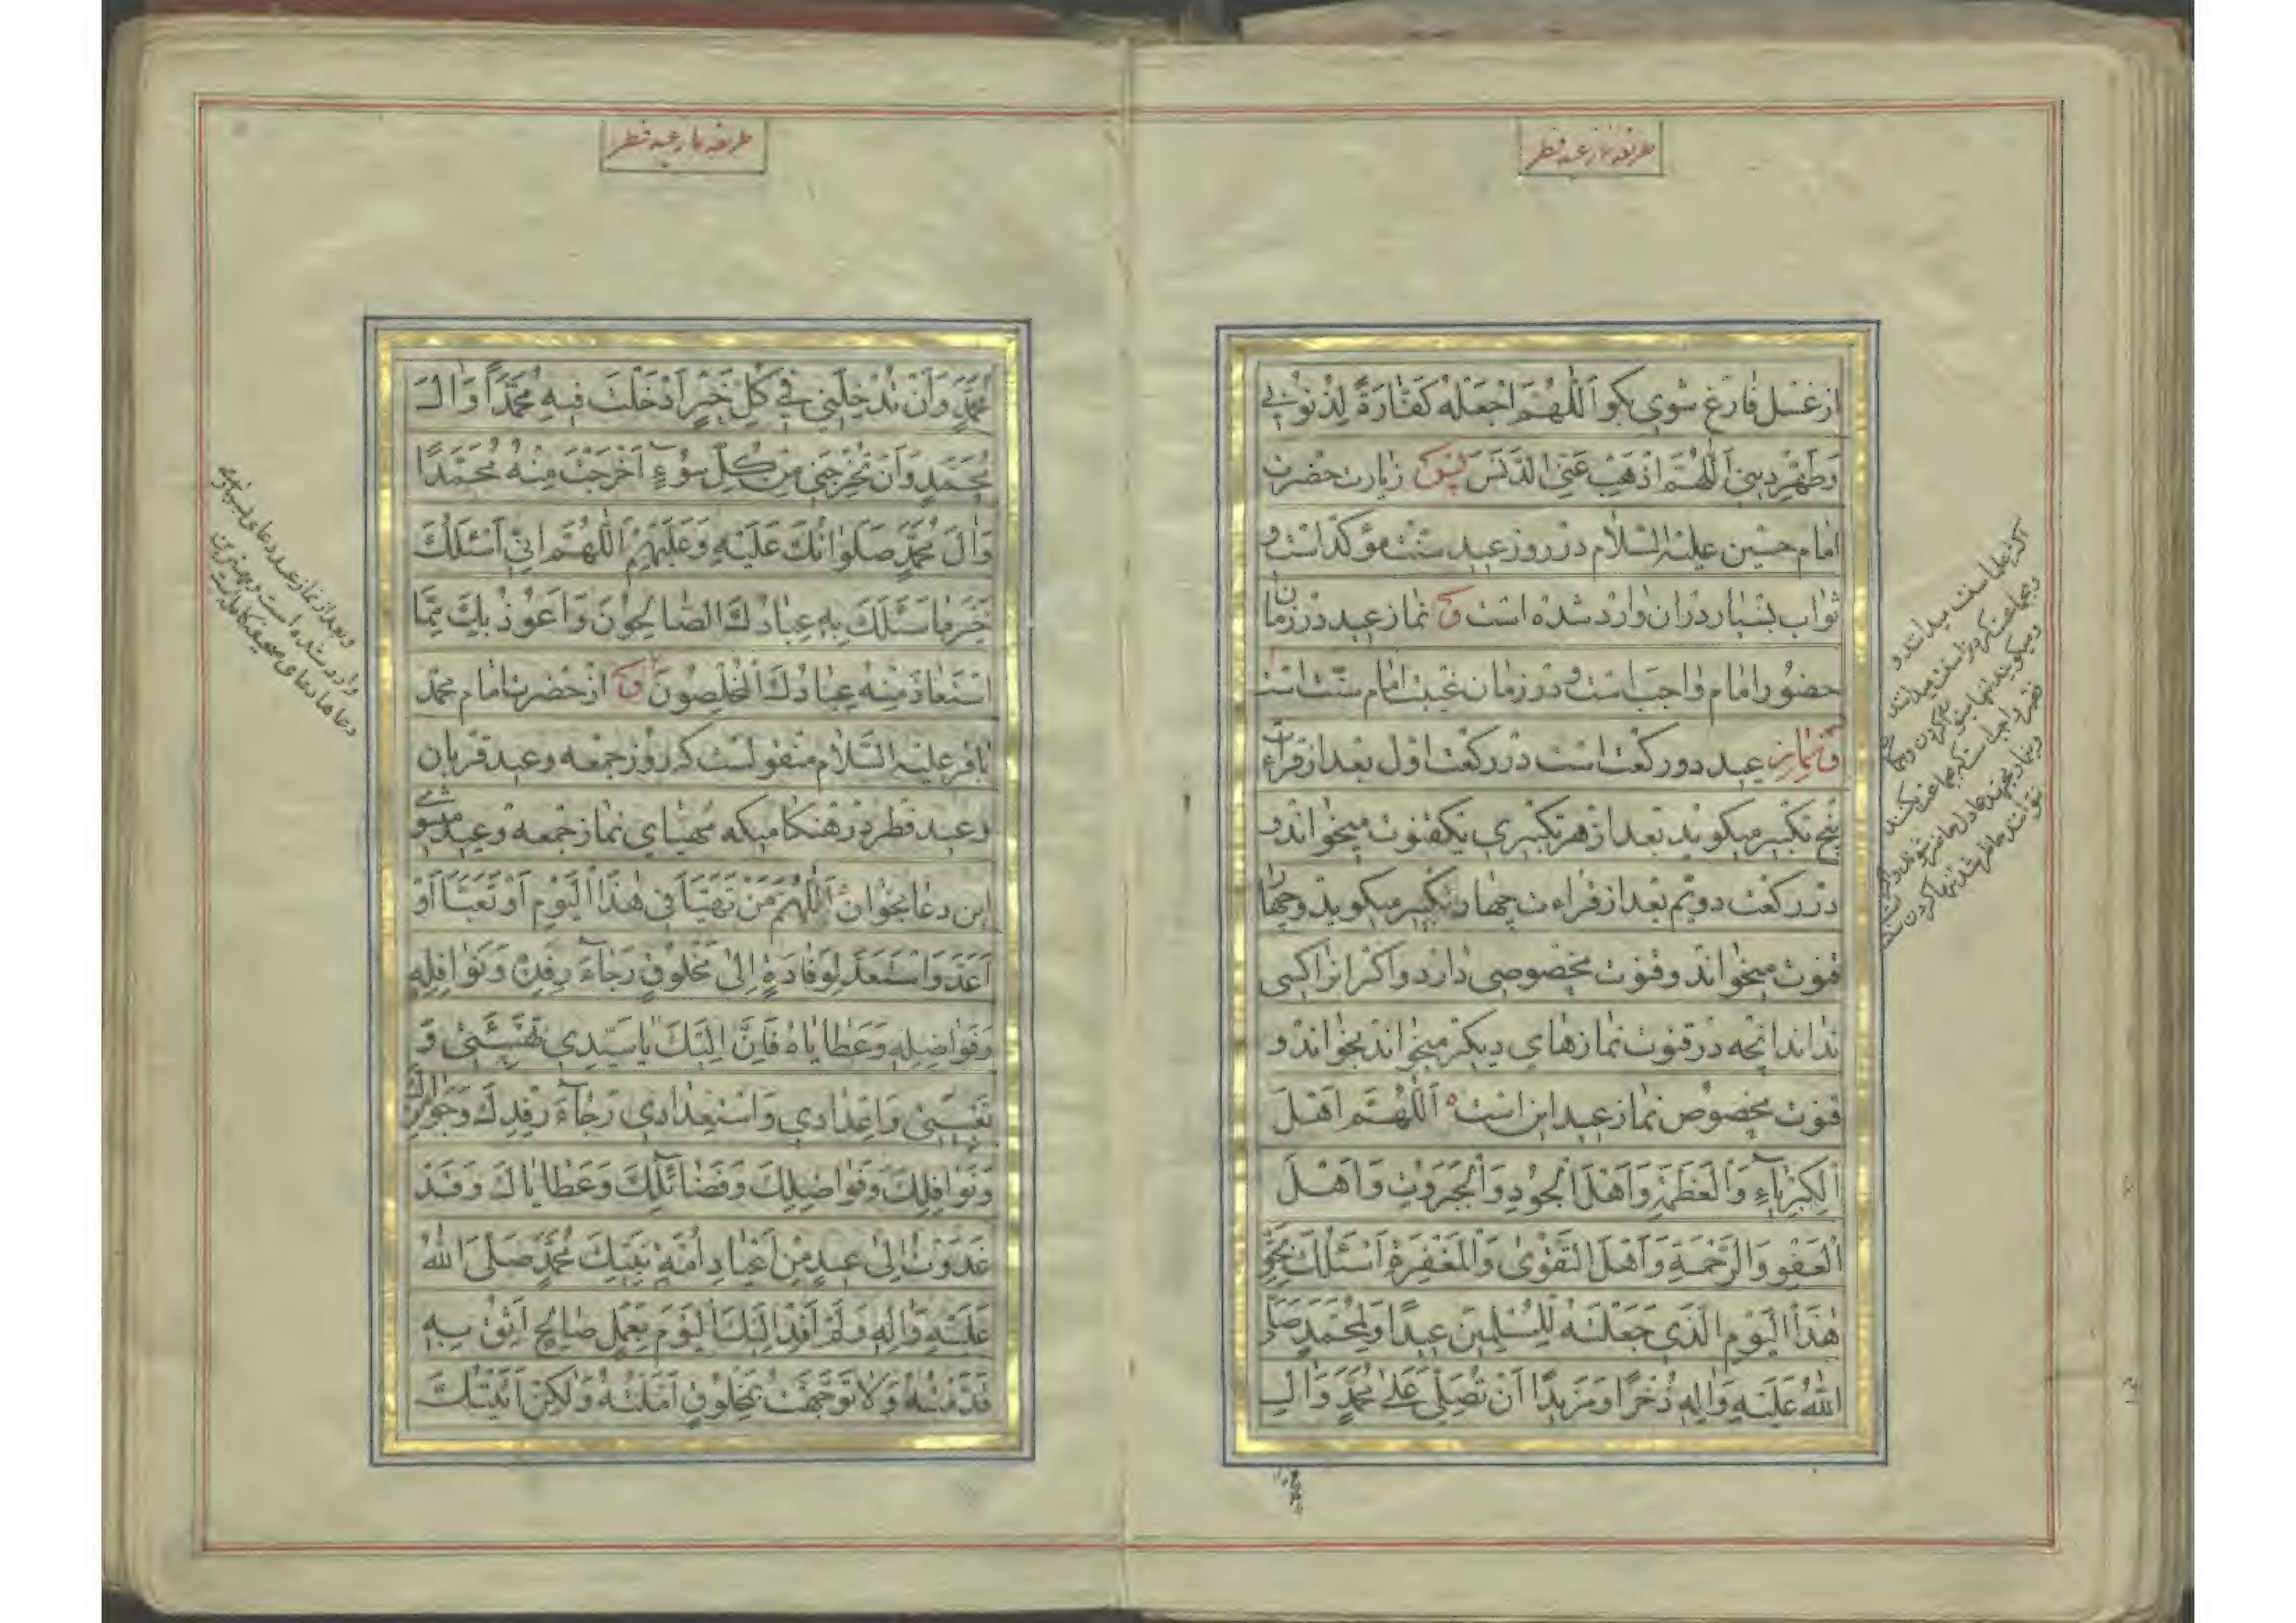 طریقه نماز عید فطر
از غسل فارغ شوی بکو اَللّٰهُمَّ اجْعَلْهُ كَفّٰارَةً لِذُنُوبي
وَطَهِّرْ دِیني اَللّٰهُمَّ اذْهَبْ عَنِّي الدَّنَسَ پس زیارت حضرت
امام حسین علیه السّلام در روز عید سنّت مؤکّد است و
ثواب بسیار در ان وارد شده است و نماز عید در زمان
حضور امام واجب است و در زمان غیبت امام سنّت است
و نماز عید دو رکعت است در رکعت اول بعد از قراءت
پنج تکبیر میکوید بعد از هر تکبیری یک قنوت میخواند و
در رکعت دویّم بعد از قراءت چهار تکبیر میکوید و چهار
قنوت میخواند و قنوت مخصوصی دارد و اکر انرا کسی
نداند انچه در قنوت نمازهای دیکر میخواند بخواند و
قنوت مخصوص نماز عید این است اَللّٰهُمَّ اَهْلَ
الْكِبْرِيٰآءِ وَالْعَظَمَةِ وَاَهْلَ الْجُودِ وَالْجَبَرُوتِ وَاَهْلَ
الْعَفْوِ وَالرَّحْمَةِ وَاَهْلَ التَّقْوىٰ وَالْمَغْفِرَةِ اَسْئَلُكَ بِحَقِّ
هٰذَا الْيَوْمِ الَّذي جَعَلْتَهُ لِلْمُسْلِمينَ عيدًا وَلِمُحَمَّدٍ صَلَّى
اللّٰهُ عَلَيْهِ وَاٰلِهِ ذُخْرًا وَمَزيدًا اَنْ تُصَلِّيَ عَلىٰ مُحَمَّدٍ وَاٰلِ
طریقه نماز عید فطر
مُحَمَّدٍ وَاَنْ تُدْخِلَني في كُلِّ خَيْرٍ اَدْخَلْتَ فيهِ مُحَمَّدًا وَاٰلَ
مُحَمَّدٍ وَاَنْ تُخْرِجَني مِنْ كُلِّ سُوٓءٍ اَخْرَجْتَ مِنْهُ مُحَمَّدًا
وَاٰلَ مُحَمَّدٍ صَلَوٰاتُكَ عَلَيْهِ وَعَلَيْهِمْ اَللّٰهُمَّ اِنّي اَسْئَلُكَ
خَيْرَ مٰا سَئَلَكَ بِهِ عِبٰادُكَ الصّٰالِحُونَ وَاَعُوذُ بِكَ مِمَّا
اسْتَعٰاذَ مِنْهُ عِبٰادُكَ الْمُخْلِصُونَ و از حضرت امام محمّد
باقر علیه السّلام منقولست که روز جمعه و عید قربان
و عید فطر در هنکامیکه مهیّای نماز جمعه و عید میشوی
این دعا بخوان اَللّٰهُمَّ مَنْ تَهَيَّأَ في هٰذَا الْيَوْمِ اَوْ تَعَبَّأَ اَوْ
اَعَدَّ وَاسْتَعَدَّ لِوِفٰادَةٍ اِلىٰ مَخْلُوقٍ رَجٰآءَ رِفْدِهِ وَنَوٰافِلِهِ
وَفَوٰاضِلِهِ وَعَطٰايٰاهُ فَاِنَّ اِلَيْكَ يٰا سَيِّدي تَهْيِئَتي وَ
تَعْبِئَتي وَاِعْدٰادي وَاسْتِعْدٰادي رَجٰآءَ رِفْدِكَ وَجَوٰائِزِكَ
وَنَوٰافِلِكَ وَفَوٰاضِلِكَ وَفَضٰآئِلِكَ وَعَطٰايٰاكَ وَقَدْ
غَدَوْتُ اِلىٰ عيدٍ مِنْ اَعْيٰادِ اُمَّةِ نَبِيِّكَ مُحَمَّدٍ صَلَّى اللّٰهُ
عَلَيْهِ وَاٰلِهِ وَلَمْ اَفِدْ اِلَيْكَ الْيَوْمَ بِعَمَلٍ صٰالِحٍ اَثِقُ بِهِ
قَدَّمْتُهُ وَلٰا تَوَجَّهْتُ بِمَخْلُوقٍ اَمَّلْتُهُ وَلٰكِنْ اَتَيْتُكَ
و بعد از نماز عید دعای بسیاری
وارد شده است و بهترین
دعاها دعای صحیفه کامله است